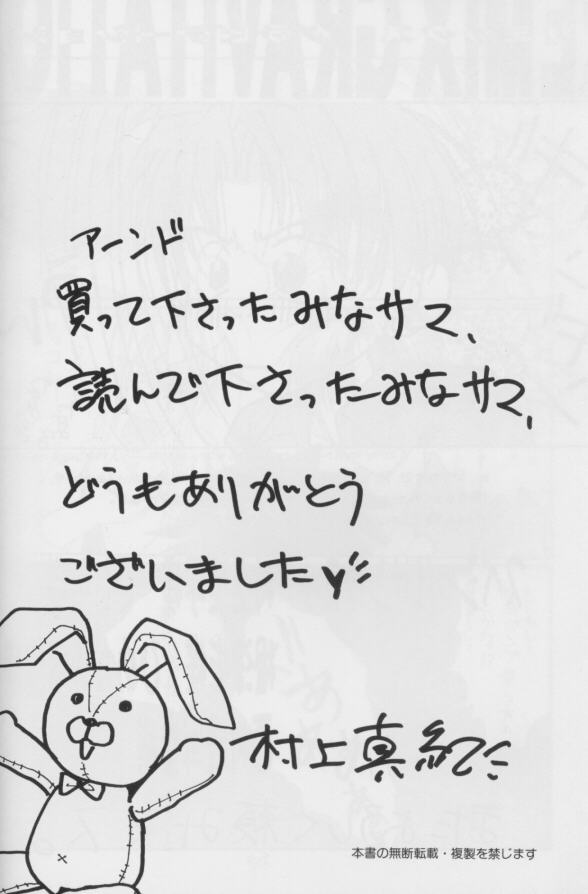 アーンド
買って下さったみなサマ、
読んで下さったみなサマ、
どうもありがとう
ございました♥
村上真紀
本書の無断転載・複製を禁じます